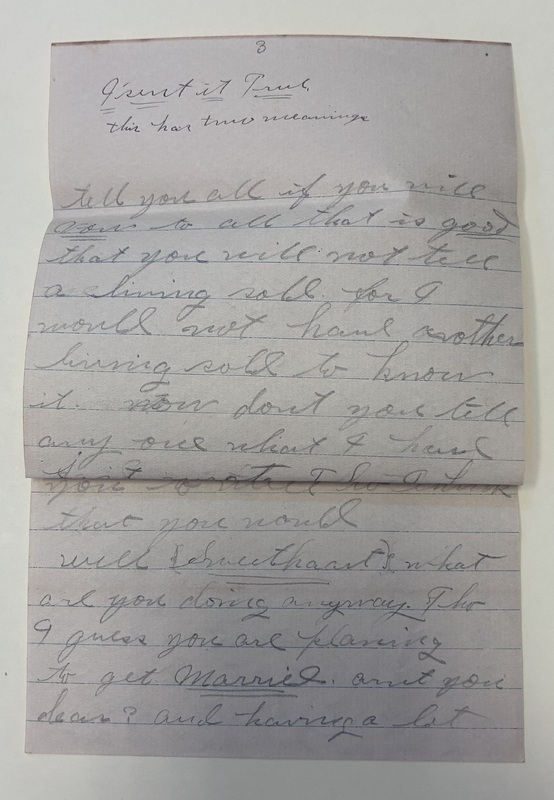 3
I'sent it True
this has two meanings
tell you all if you will
vow to all that is good
that you will not tell
a living sold. for I
would not have another
living sold to know
it. now dont you tell
any one what I have
that you would
well (sweethaart) what
are you doing anyway. Tho
I guess you are planing
to get Married. arnt you
dear? and having a lot